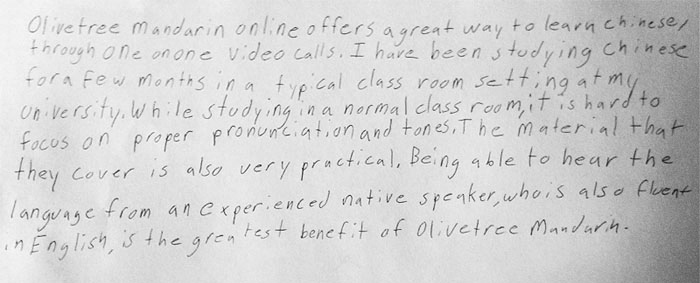 Olivetree Mandarin online offers a great way to learn Chinese,
through one on one video calls. I have been studying Chinese
for a few months in a typical class room setting at my
university. While studying in a normal class room, it is hard to
focus on proper pronunciation and tones. The material that
they cover is also very practical. Being able to hear the
language from an experienced native speaker, who is also fluent
in English, is the greatest benefit of Olivetree Mandarin.